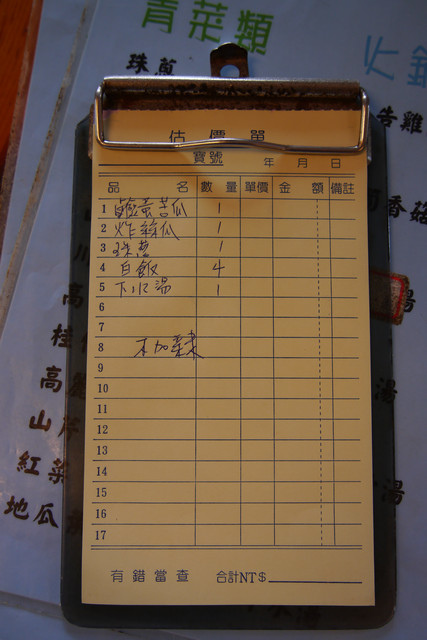 青菜類
火鍋
珠蔥
告雞
估價單
寶號 年 月 日
品 名 數 量 單價 金 額 備註
1 鹹蛋苦瓜 1
2 炸絲瓜 1
3 珠蔥 1
4 白飯 4
5 下水湯 1
6
7
8 不加辣
9
10
11
12
13
14
15
16
17
有錯當查 合計NT$
香菇
湯
高
桂
高
湯
山芹
紅菜
湯
地瓜